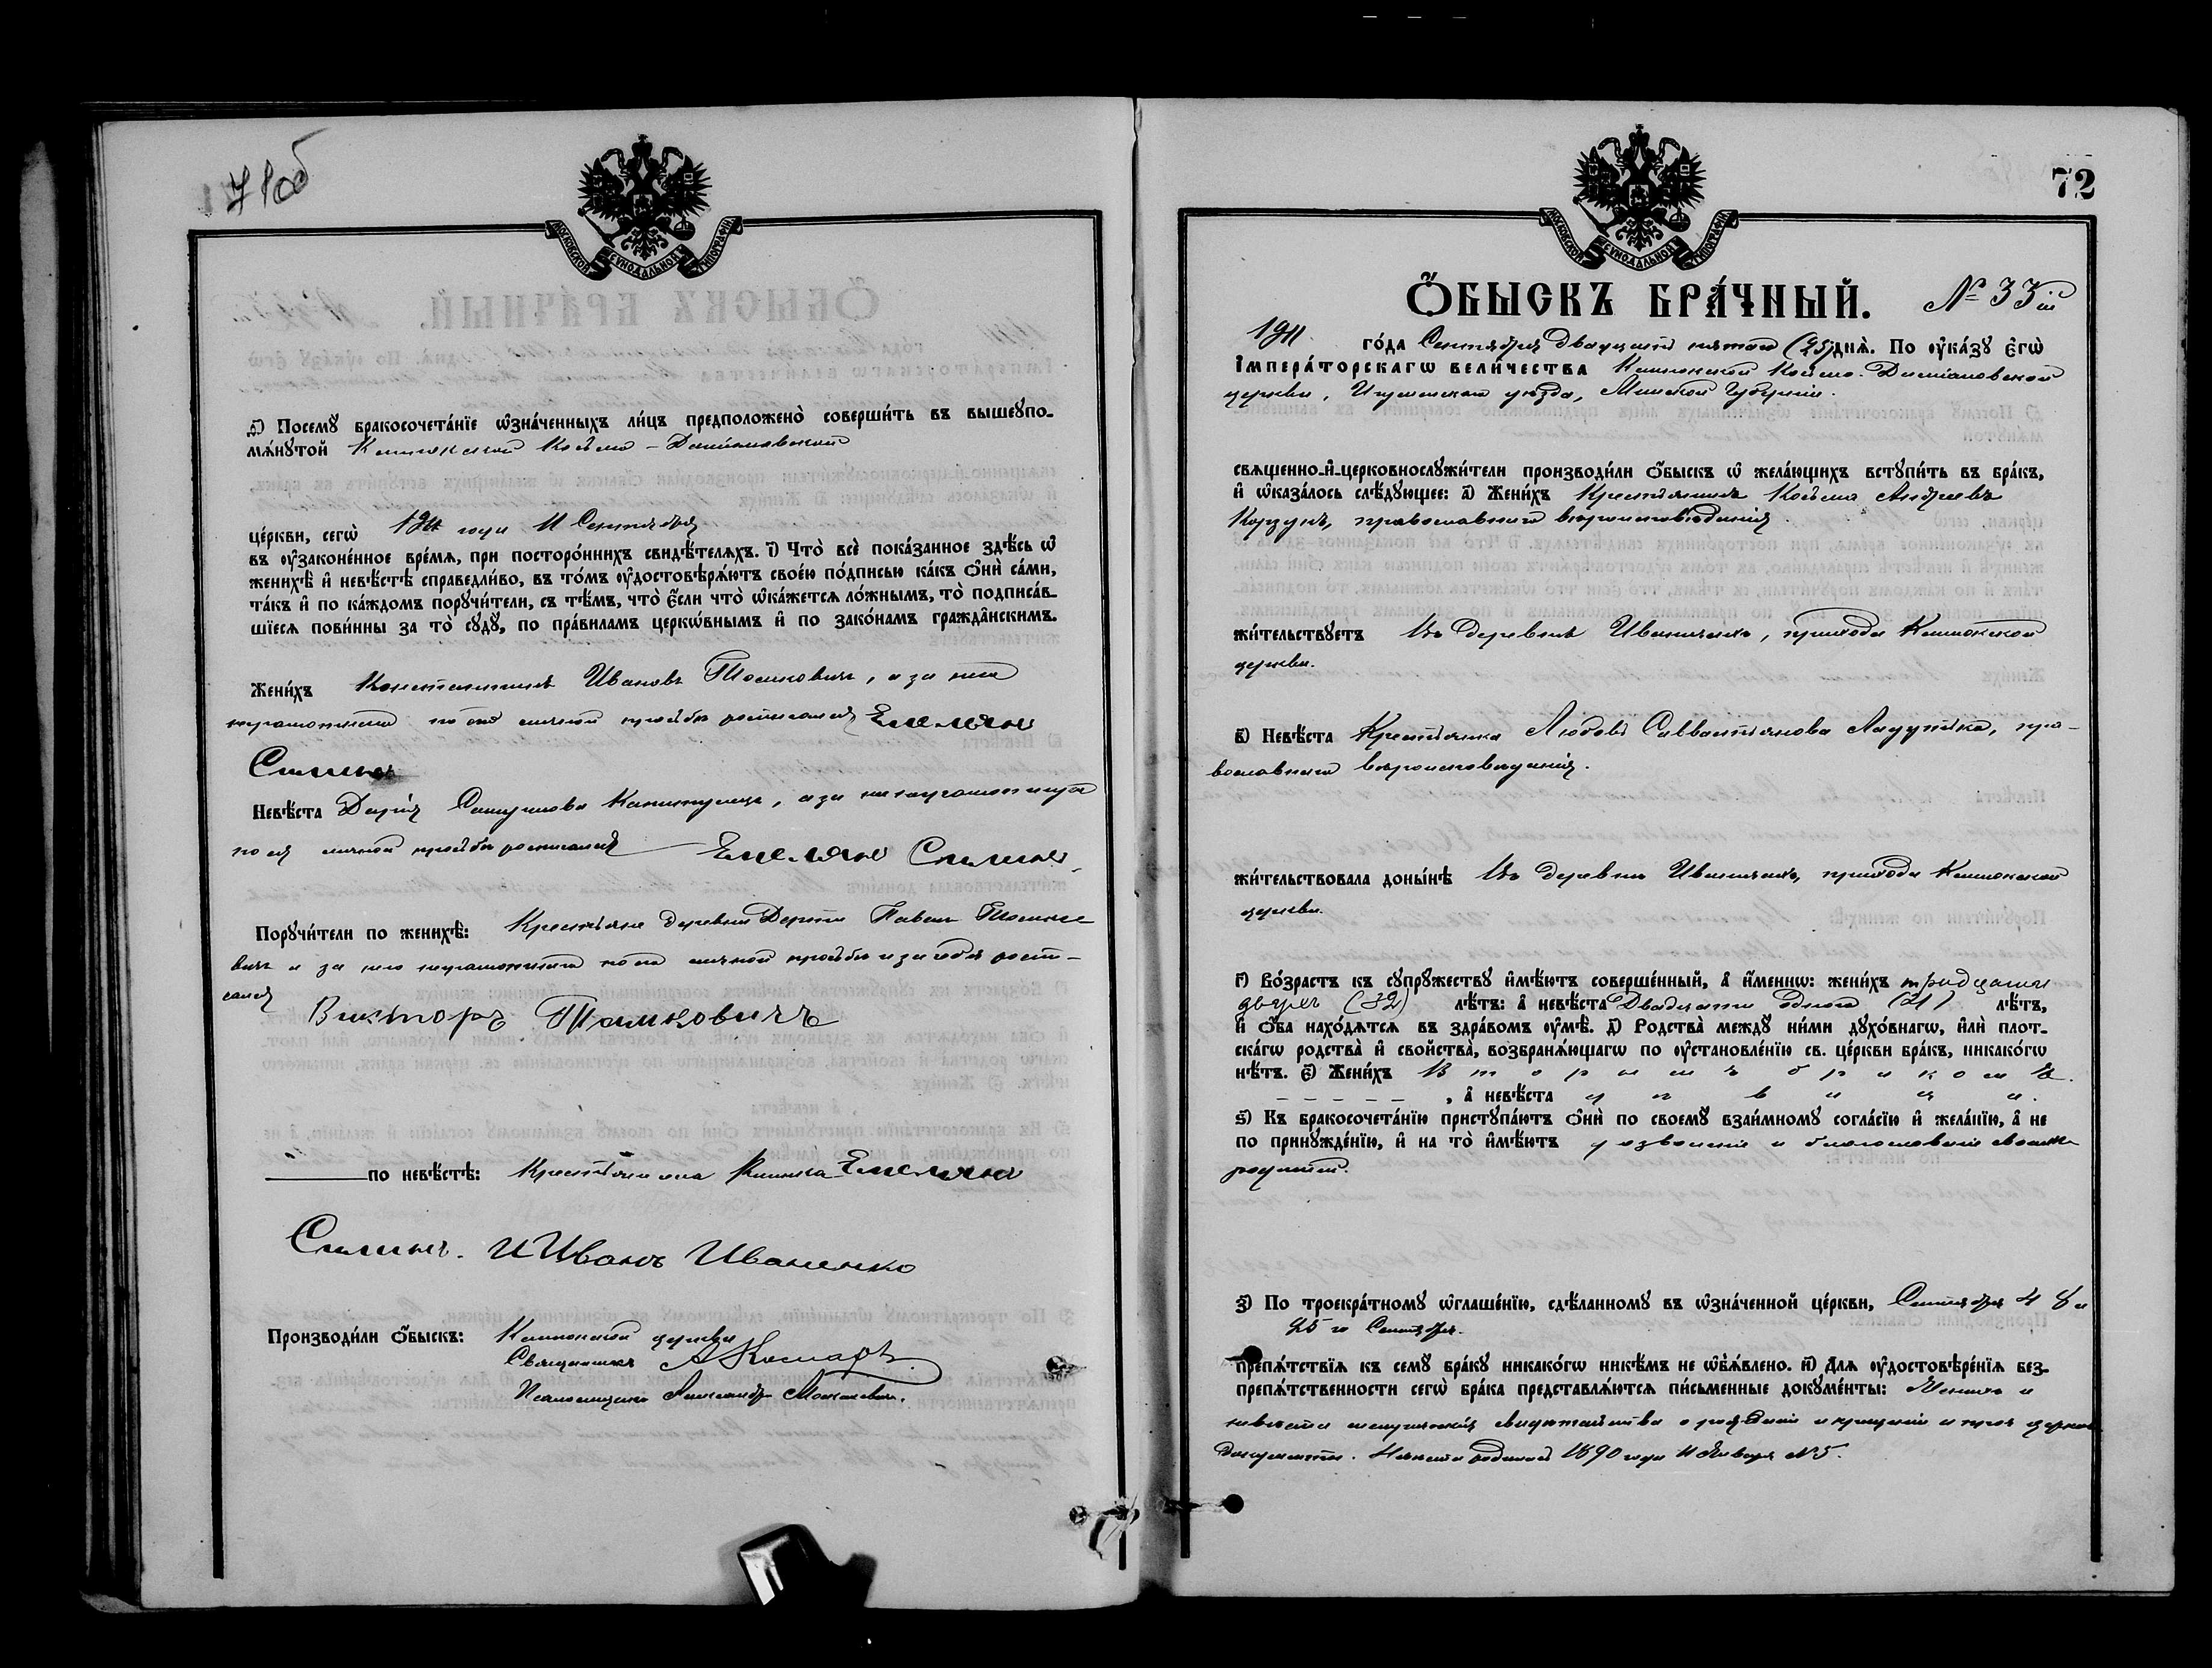 71об
МОСКОВСКОЙ СѴНОДАЛЬНОЙ ТИПОГРАФІИ
д҃і) Посемꙋ бракосочета́нїе ѡ҆зна́ченныхъ ли́цъ предположено̀ соверши́ть въ вышеꙋпо-
мѧ́нꙋтой Клинокской Косьмо-Даміановской
це́ркви, сегѡ̀ 1911 года 11 Сентября
въ ᲂу҆законе́нное вре́мѧ, при посторо́ннихъ свидѣ́телѧхъ. і҃) Что̀ всѐ пока́занное здѣ́сь ѡ҆
женихѣ̀ и҆ невѣ́стѣ справедли́во, въ то́мъ ᲂу҆достовѣрѧ́ютъ свое́ю по́дписью ка́къ ѻ҆нѝ са́ми,
та́къ и҆ по ка́ждомъ порꙋчи́тели, съ тѣ́мъ, что̀ є҆́сли что̀ ѡ҆ка́жетсѧ ло́жнымъ, то̀ подписа́в-
шїесѧ пови́нны за то̀ сꙋдꙋ̀, по пра́виламъ церкѡ́внымъ и҆ по зако́намъ гражда̂нскимъ.
Жени́хъ Константинъ Ивановъ, а за него
неграмотнаго по его личной просьбѣ росписался Емельянъ
Силинъ
Невѣ́ста Дарія, а за неграмотную
по ея личной просьбѣ росписался Емельянъ Силинъ
Порꙋчи́тели по женихѣ̀: Крестьяне деревни Павелъ
и за него неграмотнаго по его личной просьбѣ и за себя роспи-
сался
Викторъ Таликовичъ
по невѣ́стѣ: Крестьянинъ села Клинка Емельянъ
Силинъ. И Иванъ Иваненко
Производи́ли ѻ҆́быскъ: Клинокской церкви
Священникъ
Псаломщикъ Александръ
72
МОСКОВСКОЙ СѴНОДАЛЬНОЙ ТИПОГРАФІИ
Ѻ҆́БЫСКЪ БРА́ЧНЫЙ. № 33ій
1911 го́да Сентября двадцать пятого (25) днѧ̀. По ᲂу҆ка́зꙋ є҆гѡ̀
І҆мпера́торскагѡ вели́чества Клинокской Косьмо-Даміановской
церкви, Игуменскаго уѣзда, Минской Губерніи.
свѧщенно-и҆-церковнослꙋжи́тели производи́ли ѻ҆́быскъ ѡ҆ жела́ющихъ встꙋпи́ть въ бра́къ,
и҆ ѡ҆каза́лось слѣ́дꙋющее: а҃) Жени́хъ Крестьянинъ Косьма Андреевъ
Корзунъ, православнаго вѣроисповѣданія.
жи́тельствꙋетъ Въ деревнѣ Иваничахъ, прихода Клинокской
церкви.
в҃) Невѣ́ста Крестьянка Любовь Савватіянова Ладутька, пра-
вославнаго вѣроисповѣданія.
жи́тельствовала доны́нѣ Въ деревнѣ Иваничахъ, прихода Клинокской
церкви.
г҃) Во́зрастъ къ сꙋпрꙋ́жествꙋ и҆мѣ́ютъ соверше́нный, а҆ и҆́менно: жени́хъ тридцати
двухъ (32) лѣ́тъ: а҆ невѣ́ста Двадцати одного (21) лѣ́тъ,
и҆ ѻ҆́ба нахо́дѧтсѧ въ здра́вомъ ᲂу҆мѣ̀. д҃) Родства̀ междꙋ ни́ми дꙋхо́внагѡ, и҆лѝ плот-
ска́гѡ родства̀ и҆ сво́йства, возбранѧ́ющагѡ по ᲂу҆становле́нїю св. це́ркви бра́къ, никако́гѡ
нѣ́тъ. є҃) Жени́хъ вторымъ бракомъ
, а҆ невѣ́ста дѣвица.
ѕ҃) Къ бракосочета́нїю пристꙋпа́ютъ ѻ҆нѝ по своемꙋ̀ взаи́мномꙋ согла́сїю и҆ жела́нїю, а҆ не
по принꙋжде́нїю, и҆ на то̀ и҆мѣ́ютъ дозволеніе и благословеніе своихъ
родителей.
з҃) По троекра́тномꙋ ѡ҆глаше́нїю, сдѣ́ланномꙋ въ ѡ҆зна́ченной це́ркви, Сентября 4 8 и
25 го Сентября.
препѧ́тствїѧ къ семꙋ̀ бра́кꙋ никако́гѡ никѣ́мъ не ѡ҆б̾ѧ́влено. и҃) Длѧ ᲂу҆достовѣре́нїѧ без-
препѧ́тственности сегѡ̀ бра́ка представлѧ́ютсѧ пи́сьменные докꙋме́нты: Жениха и
невѣсты метрическія свидѣтельства о рожденіи и крещеніи и проч. церков
документы. Невѣста родилась 1890 года 11 Января №5.